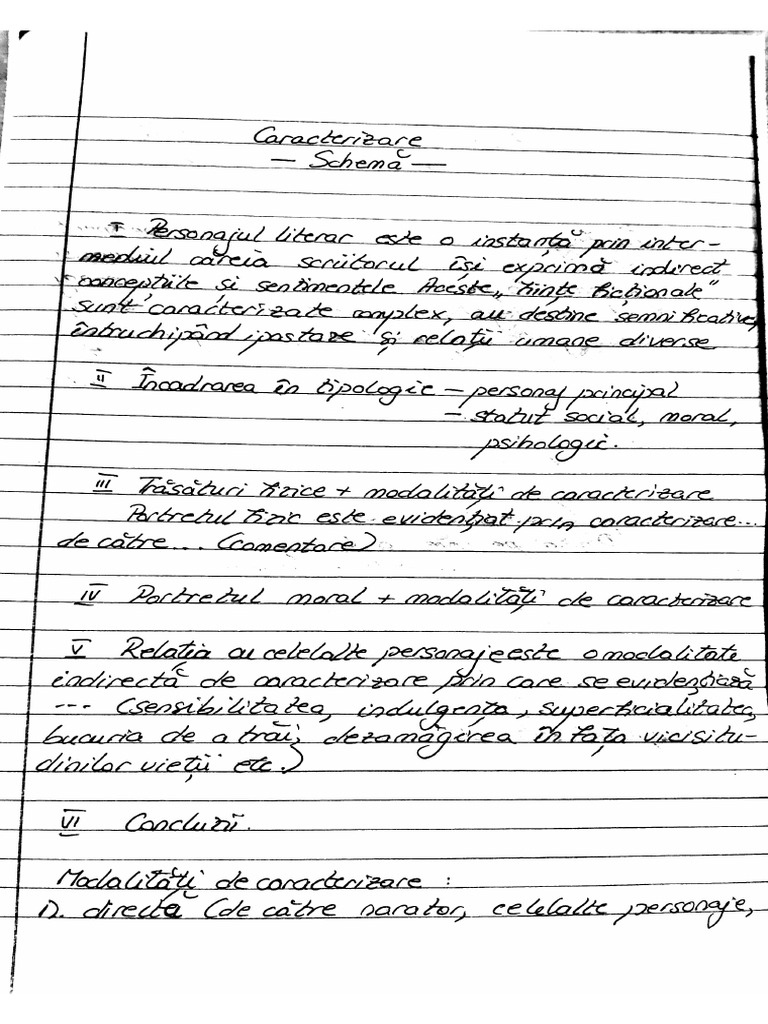 Caracterizare
— Schemă —
I Personajul literar este o instanță prin inter-
mediul căreia scriitorul își exprimă indirect
concepțiile și sentimentele Aceste „ființe ficționale"
sunt caracterizate complex, au destine semnificative,
întruchipând ipostaze și relații umane diverse
II Încadrarea în tipologie – personaj principal
– statut social, moral,
psihologic.
III Trăsături fizice + modalități de caracterizare
Portretul fizic este evidențiat prin caracterizare...
de către... (comentare)
IV Portretul moral + modalități de caracterizare
V Relația cu celelalte personaje este o modalitate
indirectă de caracterizare prin care se evidențiază
--- (sensibilitatea, indulgența, superficialitatea,
bucuria de a trăi, dezamăgirea în fața vicisitu-
dinilor vieții etc.)
VI Concluzii.
Modalități de caracterizare :
1). directă (de către narator, celelalte personaje,